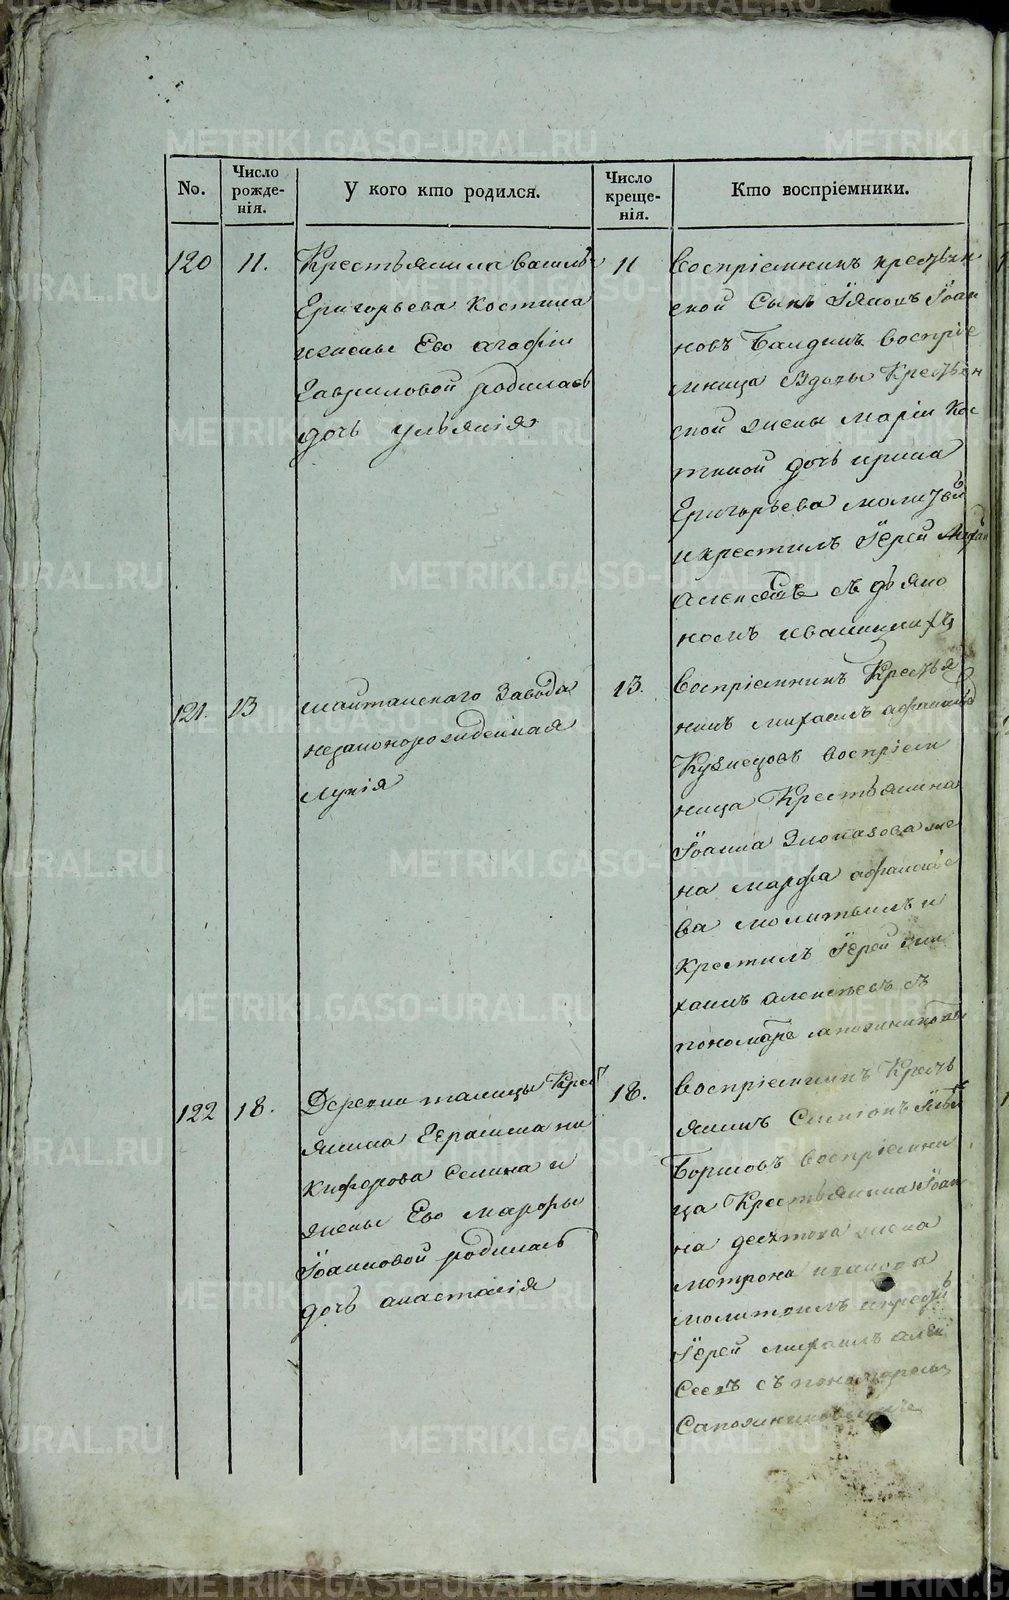 No.
Число рожде-нія.
У кого кто родился.
Число креще-нія.
Кто воспріемники.
120
11.
Крестьянина Василья
Григорьева Костина
и жены Его агафіи
Гавриловой родилась
дочь ульянія
11
Воспріемникъ крестьян
ской Сынъ Іоан
новъ Балдинъ воспріе
мница Вдовы Крестьян
ской жены маріи Кос
тиной дочь ирина
Григорьева молитвы
и крестилъ Іерей
съ дьяко
номъ
121.
13
шайтанскаго Завода
незаконорожденная
лукія
13.
Воспріемникъ Крестья
нинъ михаилъ
Кузнецовъ воспріем
ница Крестьянина
Іоанна же
на марфа афанасье
ва молитвилъ и
крестилъ Іерей ми
хаилъ алексѣевъ съ
122
18.
Деревни талицы Крес
янина Герасима ни
кифорова Селина и
жены Его марфы
Іоанновой родилась
дочь анастасія
18.
Воспріемникъ Кресть
янинъ Симіонъ
воспріемни
ца Крестьянина Іоан
на жена
мотрона
молитвилъ
Іерей михаилъ алек
сеевъ съ пономаремъ